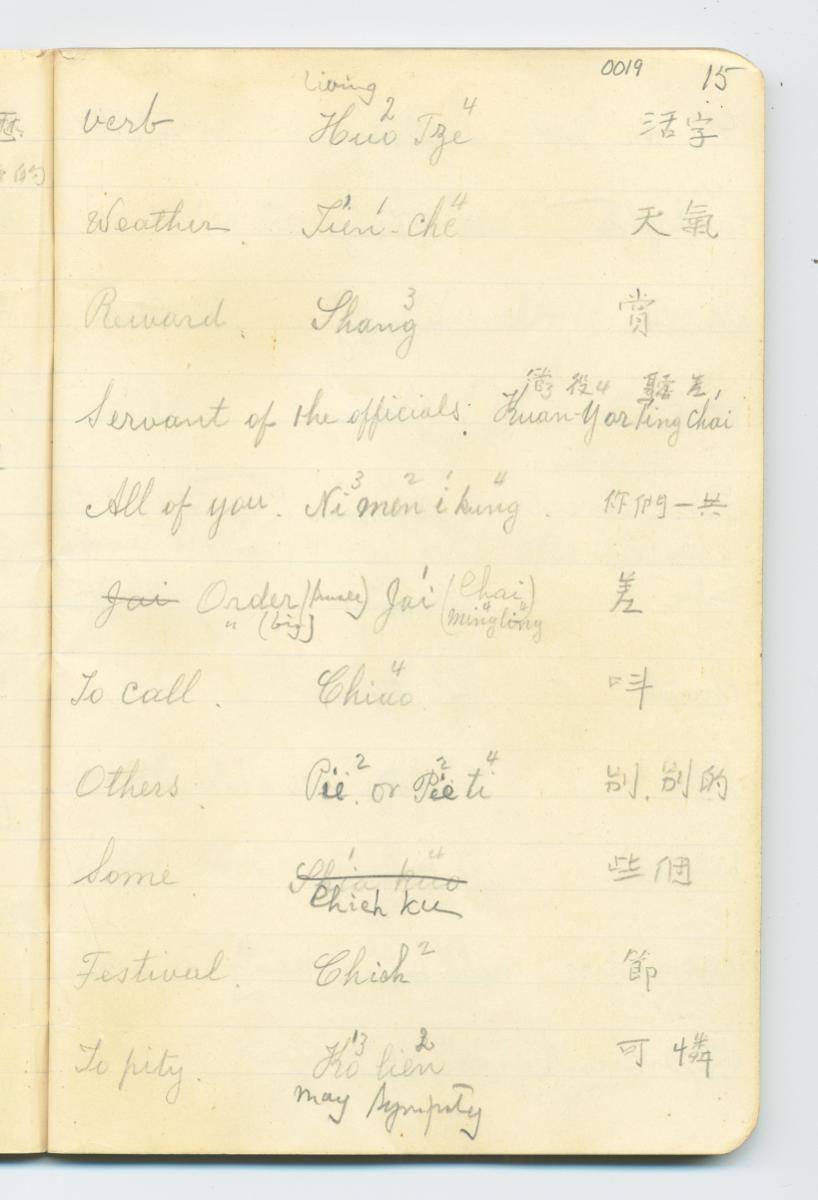 0019 15
living
verb Huo² Tze⁴ 活字
Weather. Tien¹-che⁴ 天氣
Reward. Shang³ 賞
役4 差
Servant of the officials. Kuan-Y or Ting Chai¹
All of you. Ni³ men² i¹ kung⁴. 你們一共
Jai Order (small) Jai¹ (Chai) 差
" (big) ming⁴ ling⁴
To call. Chiao⁴ 呌
Others. Pie². or Pie² ti⁴ 别. 别的
Some kuo⁴ 些個
Chieh ku
Festival. Chieh² 節
To pity. Ko³ lien² 可憐
may sympaty
的